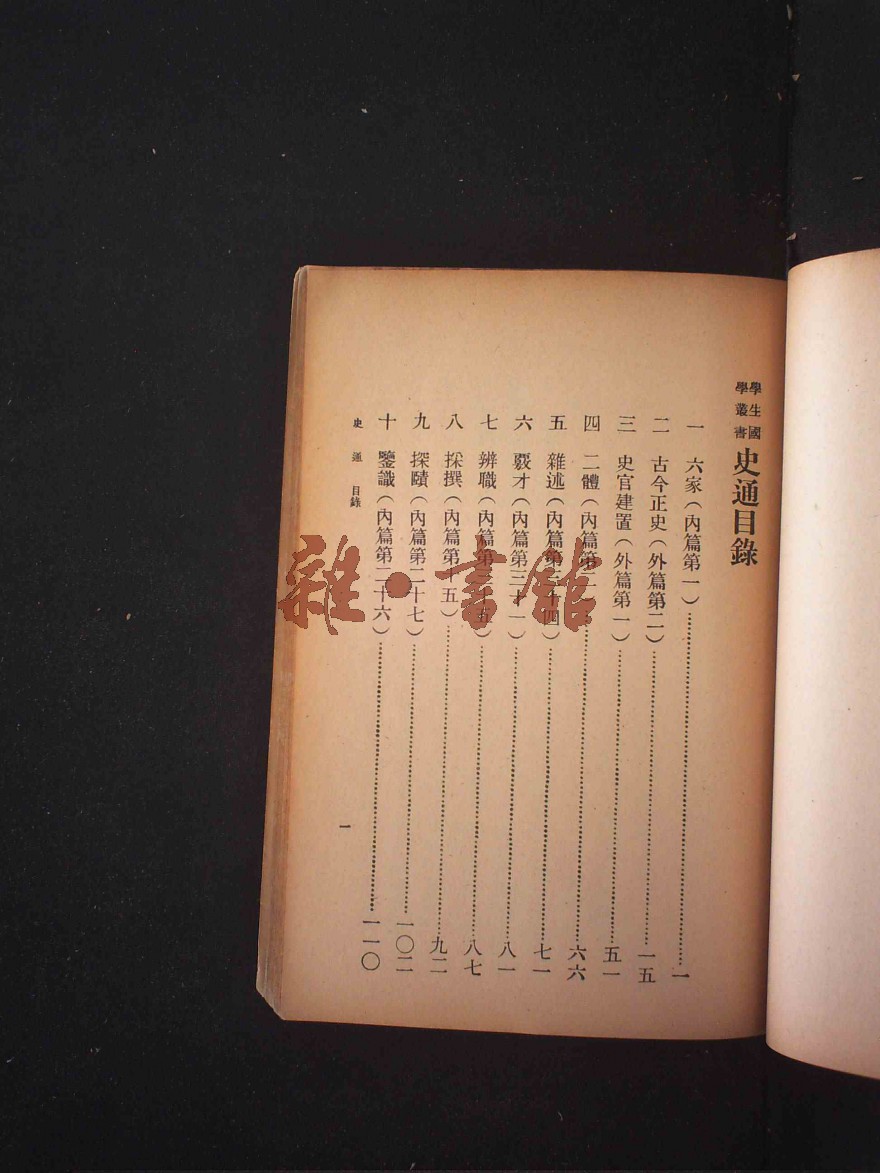 學生國學叢書 史通目錄
一 六家(內篇第一)……一
二 古今正史(外篇第二)……一五
三 史官建置(外篇第一)……五一
四 二體(內篇第二)……六六
五 雜述(內篇第三十四)……七一
六 覈才(內篇第三十一)……八一
七 辨職(內篇第三十五)……八七
八 採撰(內篇第十五)……九二
九 探賾(內篇第二十七)……一〇二
十 鑒識(內篇第二十六)……一一〇
史通 目錄
一
雜·書館